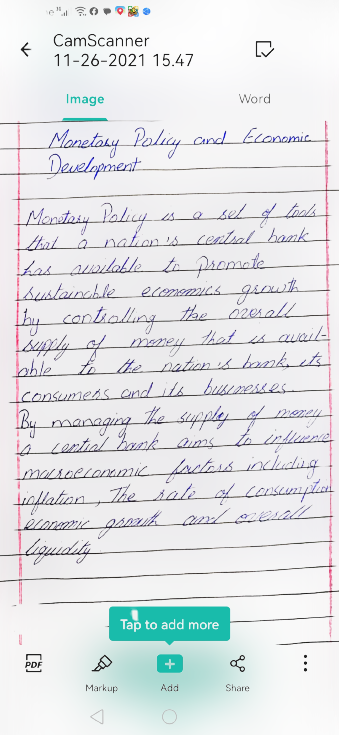 CamScanner
11-26-2021 15.47
Image Word
Monetary Policy and Economic
Development
Monetary Policy is a set of tools
that a nation's central bank
has available to promote
sustainable economics growth
by controlling the overall
supply of money that is avail-
able to the nation's bank, its
consumers and its businesses.
By managing the supply of money
a central bank aims to influence
macroeconomic factors including
inflation, The rate of consumption
economic growth and overall
liquidity.
Tap to add more
PDF
Markup Add Share